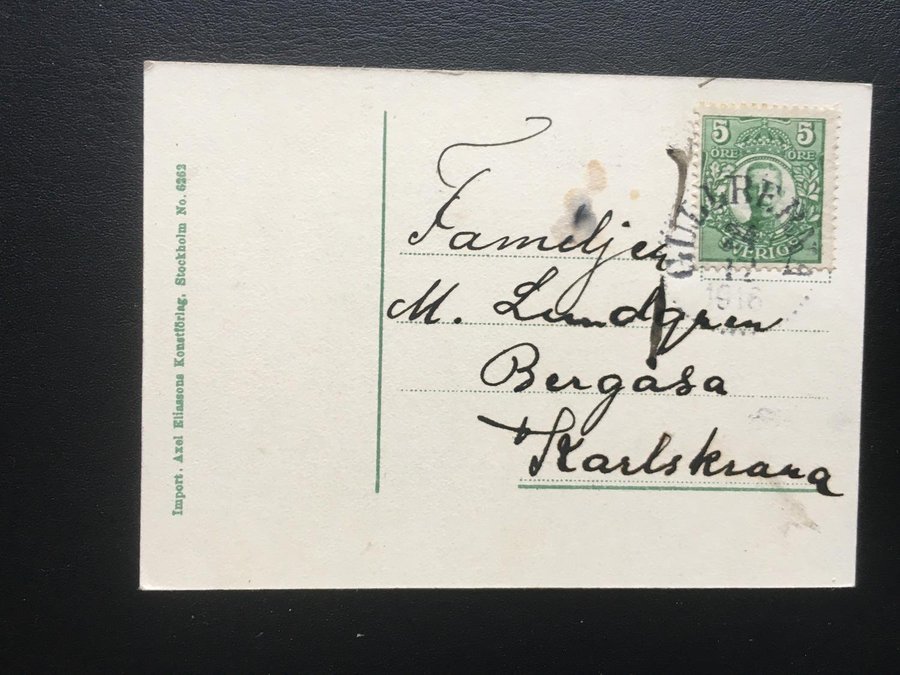 Import. Axel Eliassons Konstförlag, Stockholm No. 6262
5 5
ÖRE ÖRE
SVERIGE
1916
Familjen
M. Lundgren
Bergåsa
Karlskrona